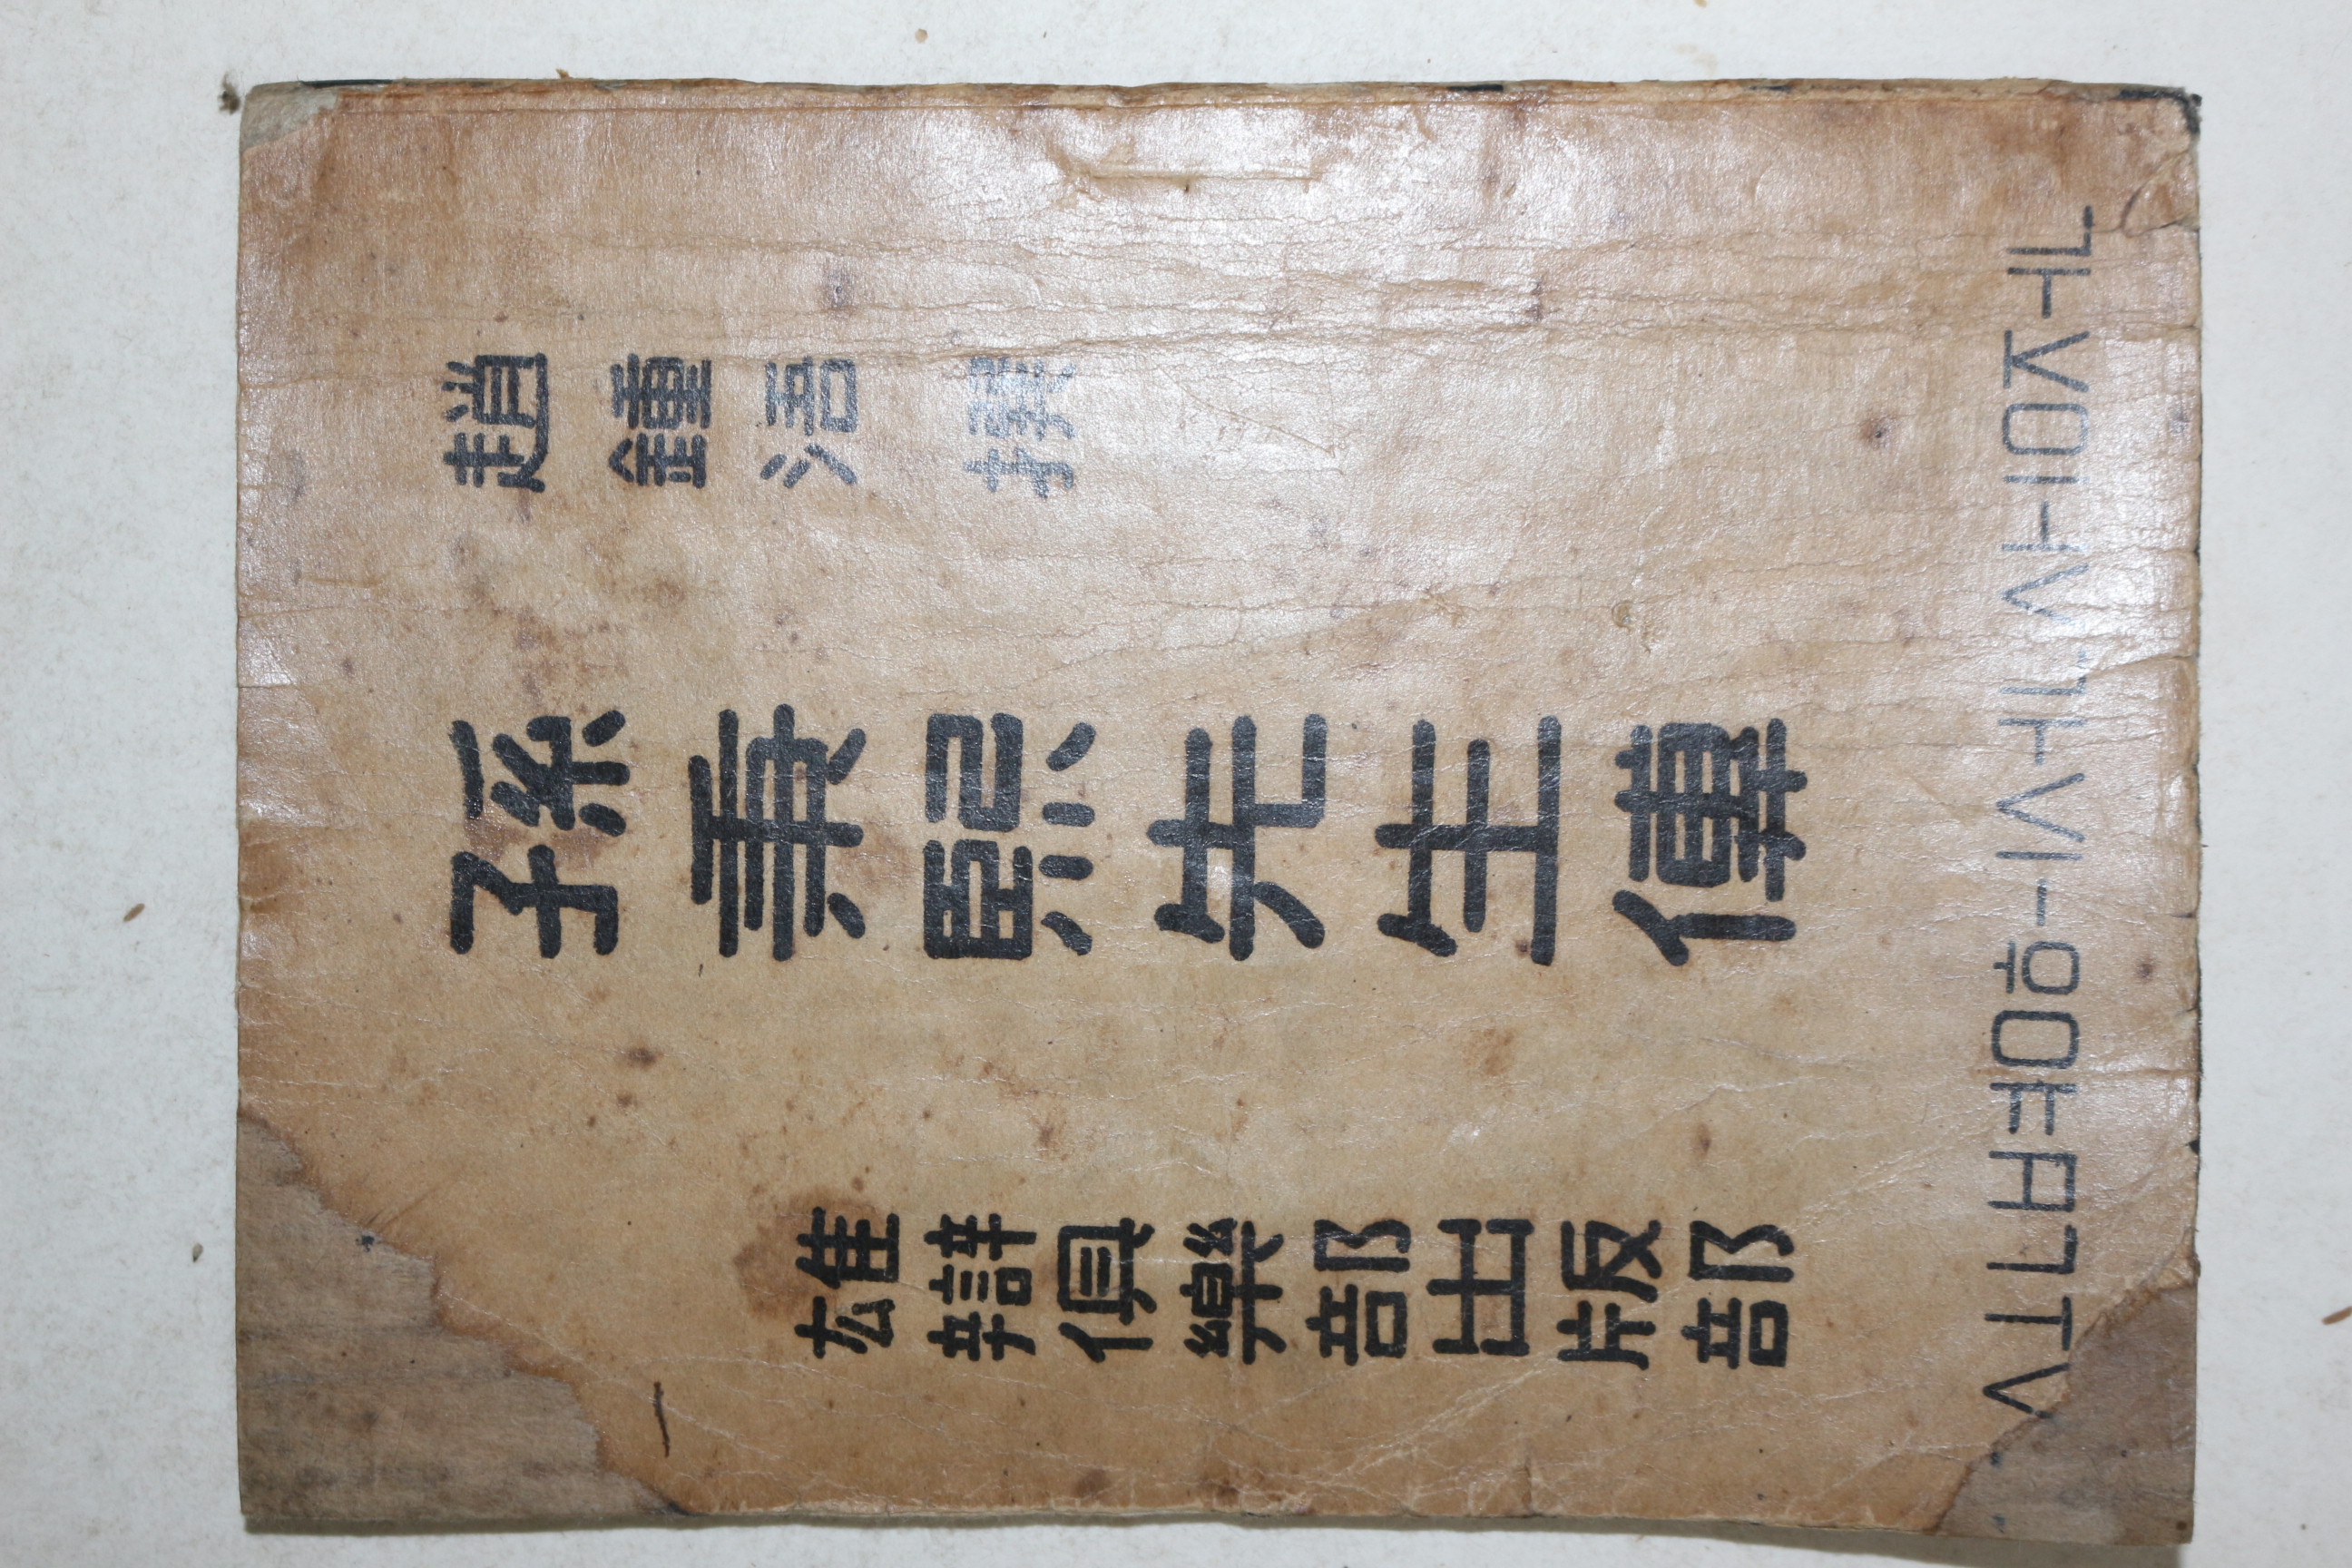 趙鍾浯 撰
孫秉熙先生傳
雄辯俱樂部出版部
ㅅㅗㄴㅂㅕㅇㅎㅡㅣㅅㅓㄴㅅㅐㅇㅈㅓㄴ